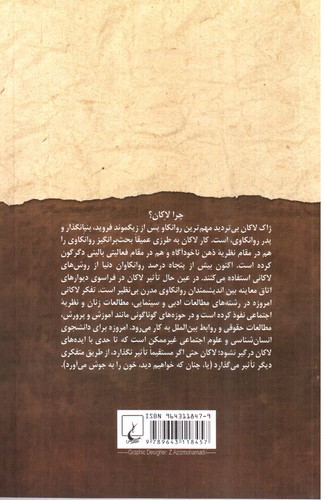 چرا لاکان؟
ژاک لاکان بی‌تردید مهم‌ترین روانکاو پس از زیگموند فروید، بنیانگذار و
پدر روانکاوی، است. کار لاکان به طرزی عمیقاً بحث‌برانگیز روانکاوی را
هم در مقام نظریهٔ ذهن ناخودآگاه و هم در مقام فعالیتی بالینی دگرگون
کرده است. اکنون بیش از پنجاه درصد روانکاوان دنیا از روش‌های
لاکانی استفاده می‌کنند. در عین حال تأثیر لاکان در فراسوی دیوارهای
اتاق معاینه بین اندیشمندان روانکاوی مدرن بی‌نظیر است. تفکر لاکانی
امروزه در رشته‌های مطالعات ادبی و سینمایی، مطالعات زنان و نظریهٔ
اجتماعی نفوذ کرده است و در حوزه‌های گوناگونی مانند آموزش و پرورش،
مطالعات حقوقی و روابط بین‌الملل به کار می‌رود. امروزه برای دانشجوی
انسان‌شناسی و علوم اجتماعی غیرممکن است که تا حدی با ایده‌های
لاکان درگیر نشود؛ لاکان حتی اگر مستقیما تأثیر نگذارد، از طریق متفکری
دیگر تأثیر می‌گذارد (یا، چنان که خواهیم دید، خون را به جوش می‌آورد).
ISBN 964311847-9
9 789643 118457
Graphic Designer: Z.Azizmohamadi